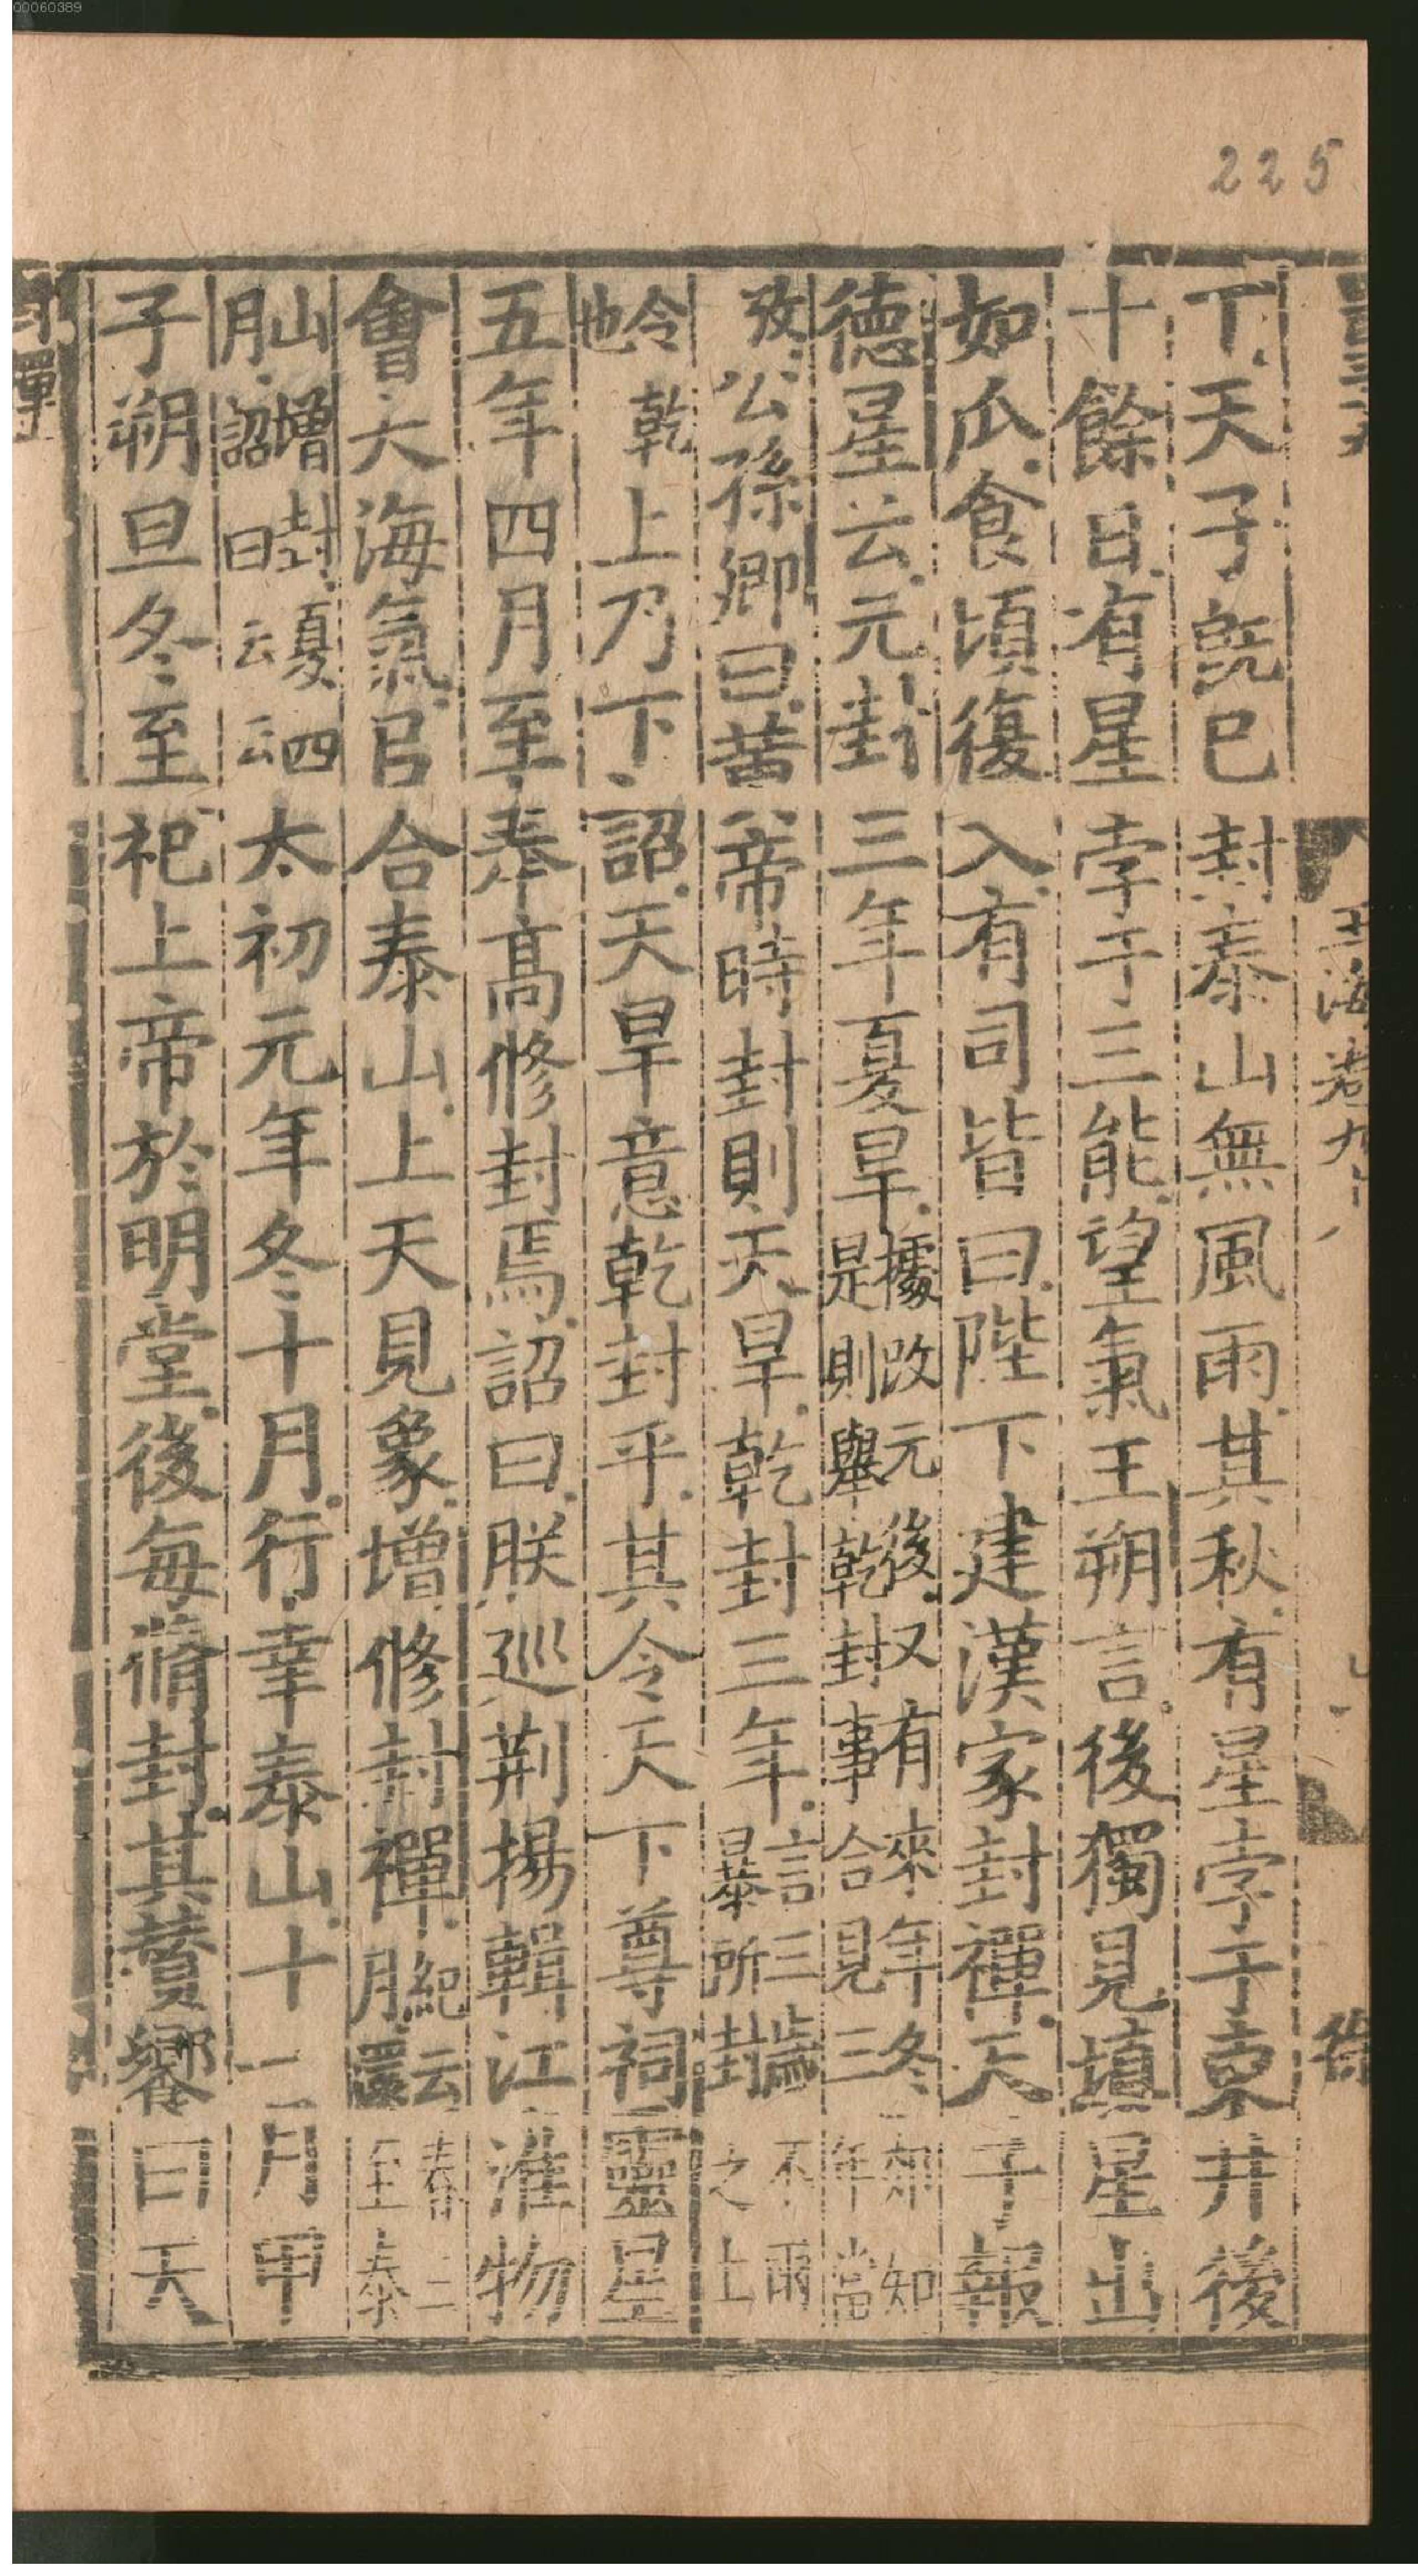 00060389
225
丁天子旣已封泰山無風雨其秋有星孛于東井後
十餘日有星孛于三能望氣王朔言後獨見塡星出
如瓜食頃復入有司皆曰陛下建漢家封禪天子報
德星云元封三年夏旱據改元後又有來年冬郊知是則舉乾封事合見三年當
攷公孫卿曰黃帝時封則天旱乾封三年言三歲不雨暴所封之土
令乾也上乃下詔天旱意乾封乎其令天下尊祠靈星
五年四月至奉高修封焉詔曰朕巡荊揚輯江淮物
會大海氣㠯合泰山上天見象增修封禪紀云春三月還至泰
山增封夏四月詔曰云云太初元年冬十月行幸泰山十一月甲
子朔旦冬至祀上帝於明堂後每脩封其贊饗曰天
玉海卷九十八